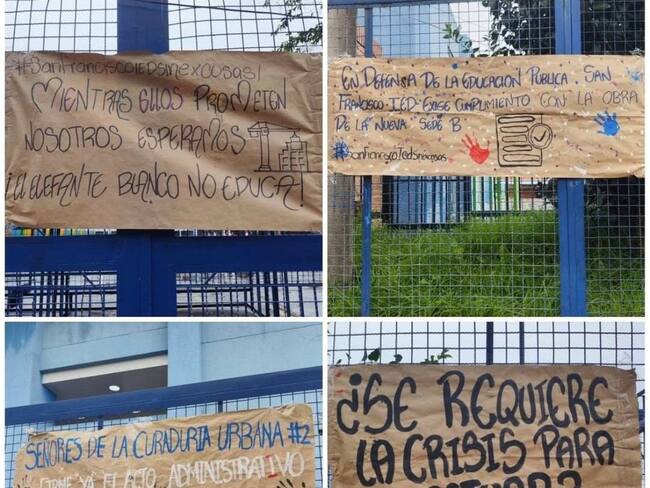 #SanFranciscoIEDsinexcusas!
MIENTRAS ELLOS PROMETEN
NOSOTROS ESPERAMOS
¡EL ELEFANTE BLANCO NO EDUCA!
EN DEFENSA DE LA EDUCACIÓN PÚBLICA SAN
FRANCISCO IED EXIGE CUMPLIMIENTO CON LA OBRA
DE LA NUEVA SEDE B
#SanFranciscoIedsinexcusas
SEÑORES DE LA CURADURIA URBANA #2
FIRME YA EL ACTO ADMINISTRATIVO
¿SE REQUIERE
LA CRISIS PARA